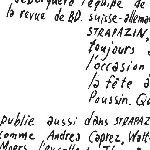 l'équipe de
la revue de BD. suisse-alleman
STRAPAZIN,
toujours
l'occasion
la fête à
Poussin. Gi
publie aussi dans STRAPAZ
comme Andrea Caprez, Walt